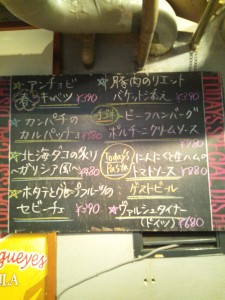 アンチョビ
キャベツ ¥390
豚肉のリエット
バケット添え ¥390
カンパチの
カルパッチョ ¥880
ビーフハンバーグ
ポルチーニクリームソース
¥880
北海ダコの炙り
〜ガリシア風〜 ¥880
Today's
Pasta
にんにくと生ハムの
トマトソース ¥880
ホタテとグレープフルーツの
セビーチェ ¥390
ゲストビール
ヴァルシュタイナー
(ドイツ) ¥680